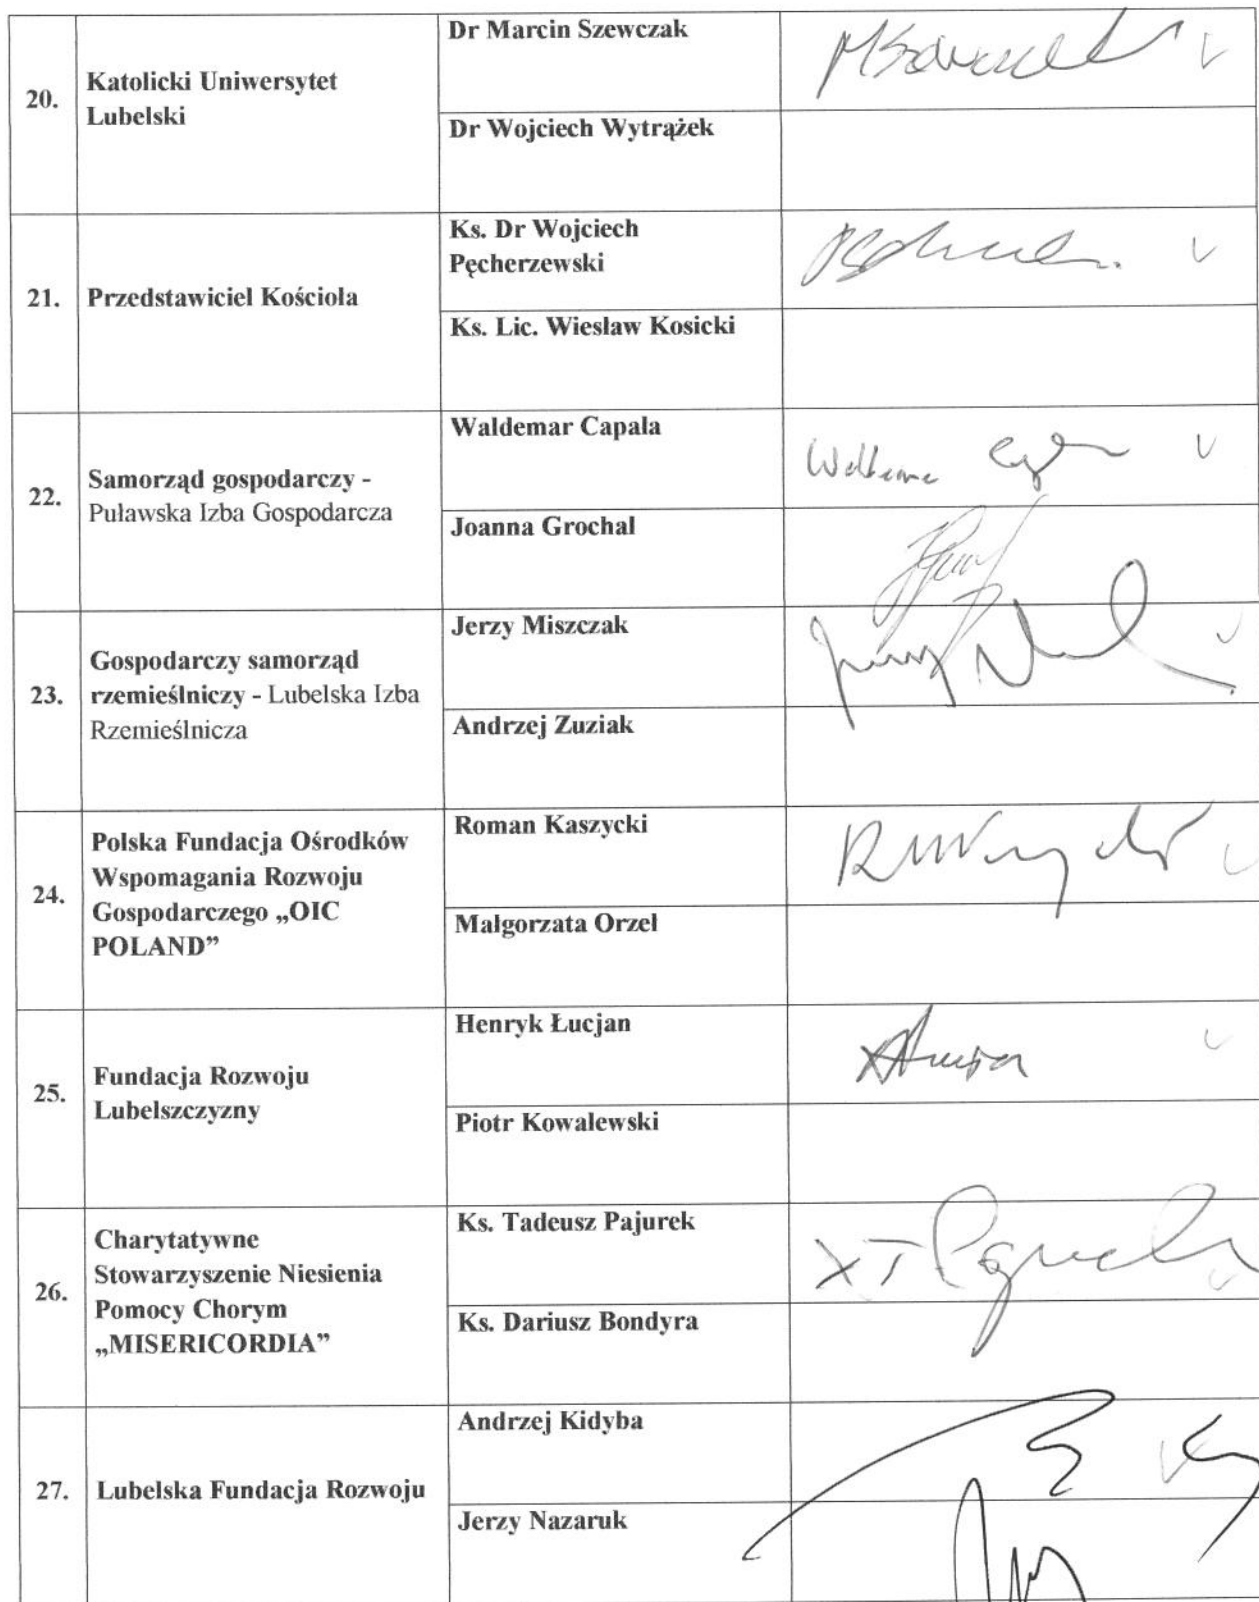 20.
Katolicki Uniwersytet
Lubelski
Dr Marcin Szewczak
Dr Wojciech Wytrążek
21.
Przedstawiciel Kościoła
Ks. Dr Wojciech
Pęcherzewski
Ks. Lic. Wiesław Kosicki
22.
Samorząd gospodarczy -
Puławska Izba Gospodarcza
Waldemar Capała
Joanna Grochal
23.
Gospodarczy samorząd
rzemieślniczy - Lubelska Izba
Rzemieślnicza
Jerzy Miszczak
Andrzej Zuziak
24.
Polska Fundacja Ośrodków
Wspomagania Rozwoju
Gospodarczego „OIC
POLAND”
Roman Kaszycki
Małgorzata Orzeł
25.
Fundacja Rozwoju
Lubelszczyzny
Henryk Łucjan
Piotr Kowalewski
26.
Charytatywne
Stowarzyszenie Niesienia
Pomocy Chorym
„MISERICORDIA”
Ks. Tadeusz Pajurek
Ks. Dariusz Bondyra
27.
Lubelska Fundacja Rozwoju
Andrzej Kidyba
Jerzy Nazaruk